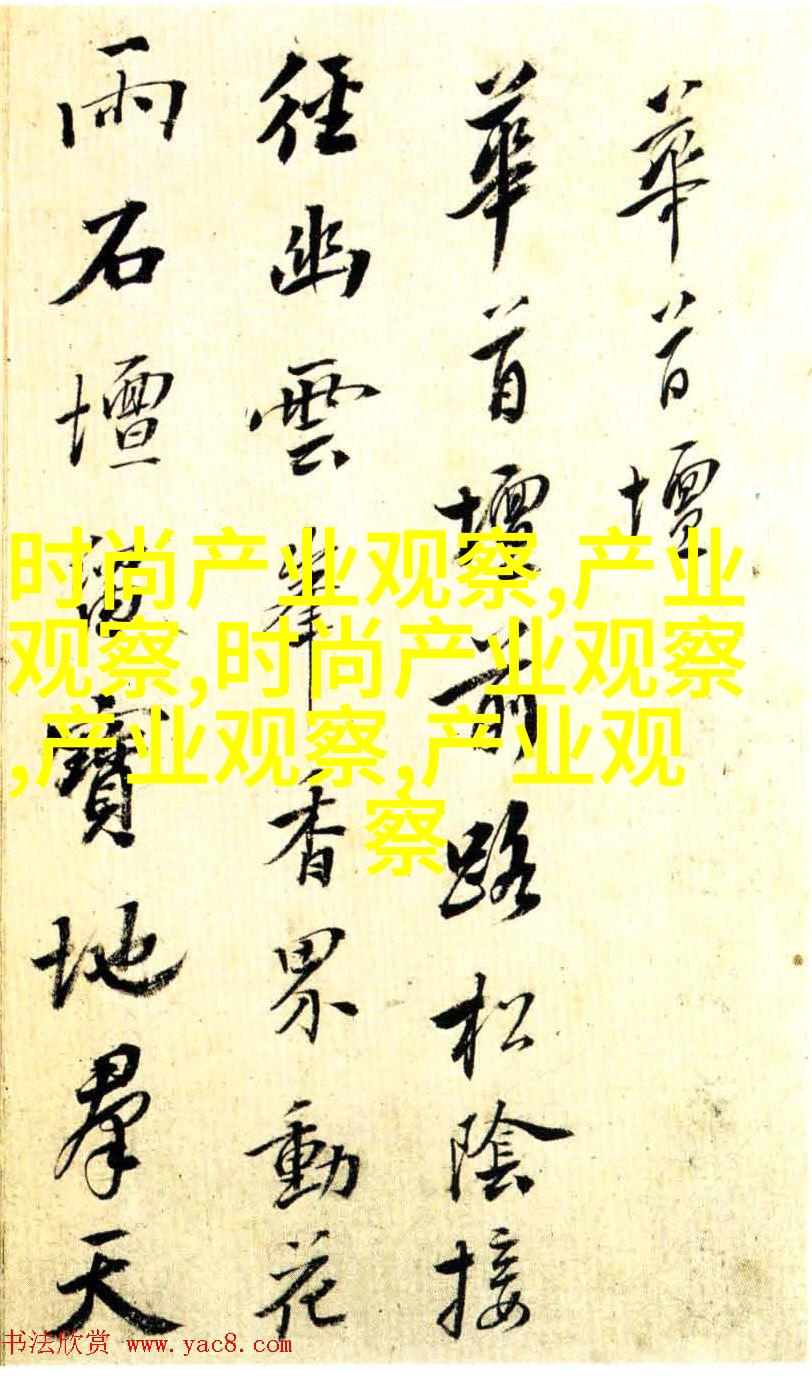 華首壇
華首壇前路松陰接
徑幽雲峯香界動花
雨石壇寶地羣天
时尚产业观察,产业
观察,时尚产业观察
,产业观察,产业观
察
书法欣赏 www.yac8.com